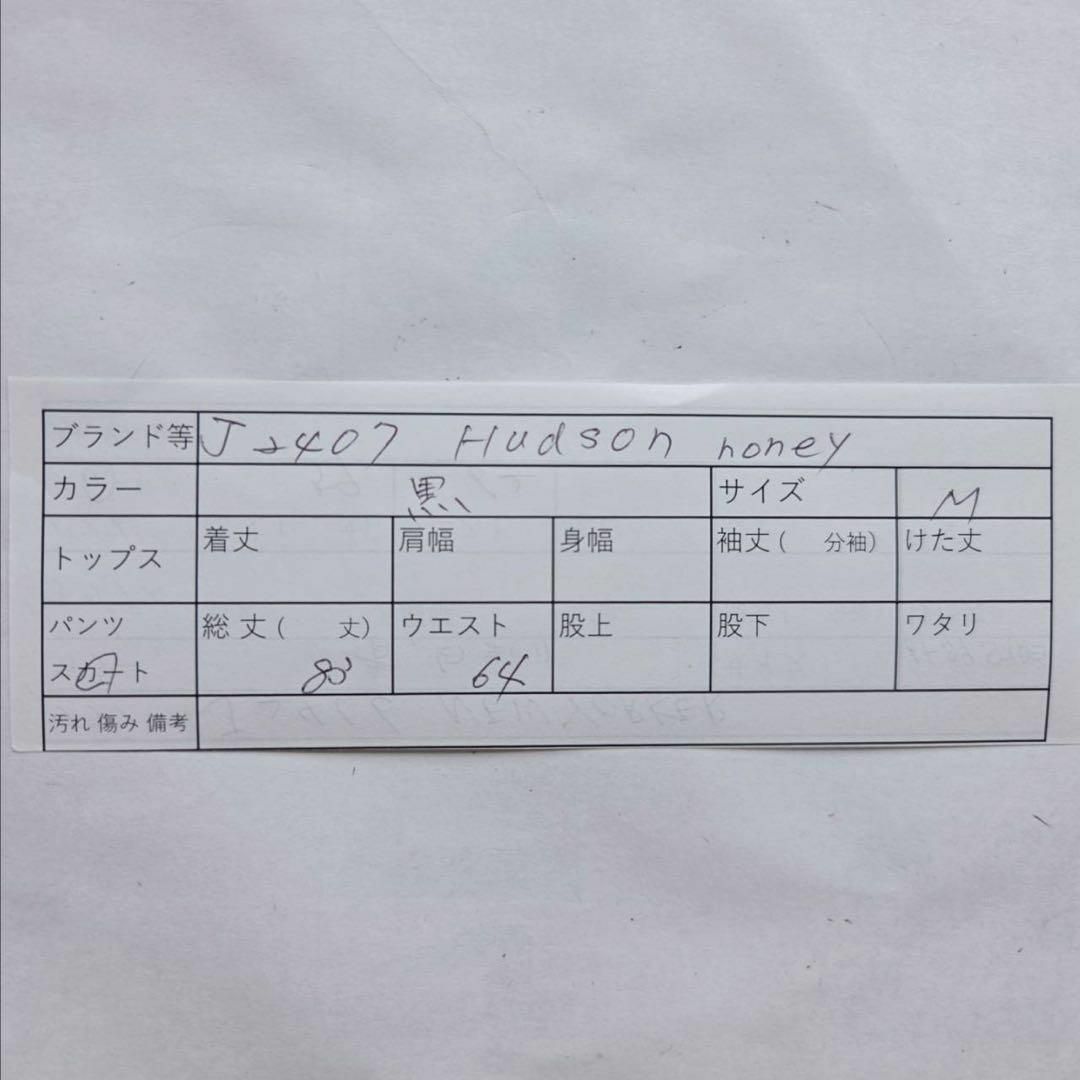 ブランド等 J2407 Hudson honey
カラー 黒 サイズ M
トップス 着丈 肩幅 身幅 袖丈( 分袖) けた丈
パンツ 総丈( 丈) ウエスト 股上 股下 ワタリ
スカート 80 64
汚れ 傷み 備考